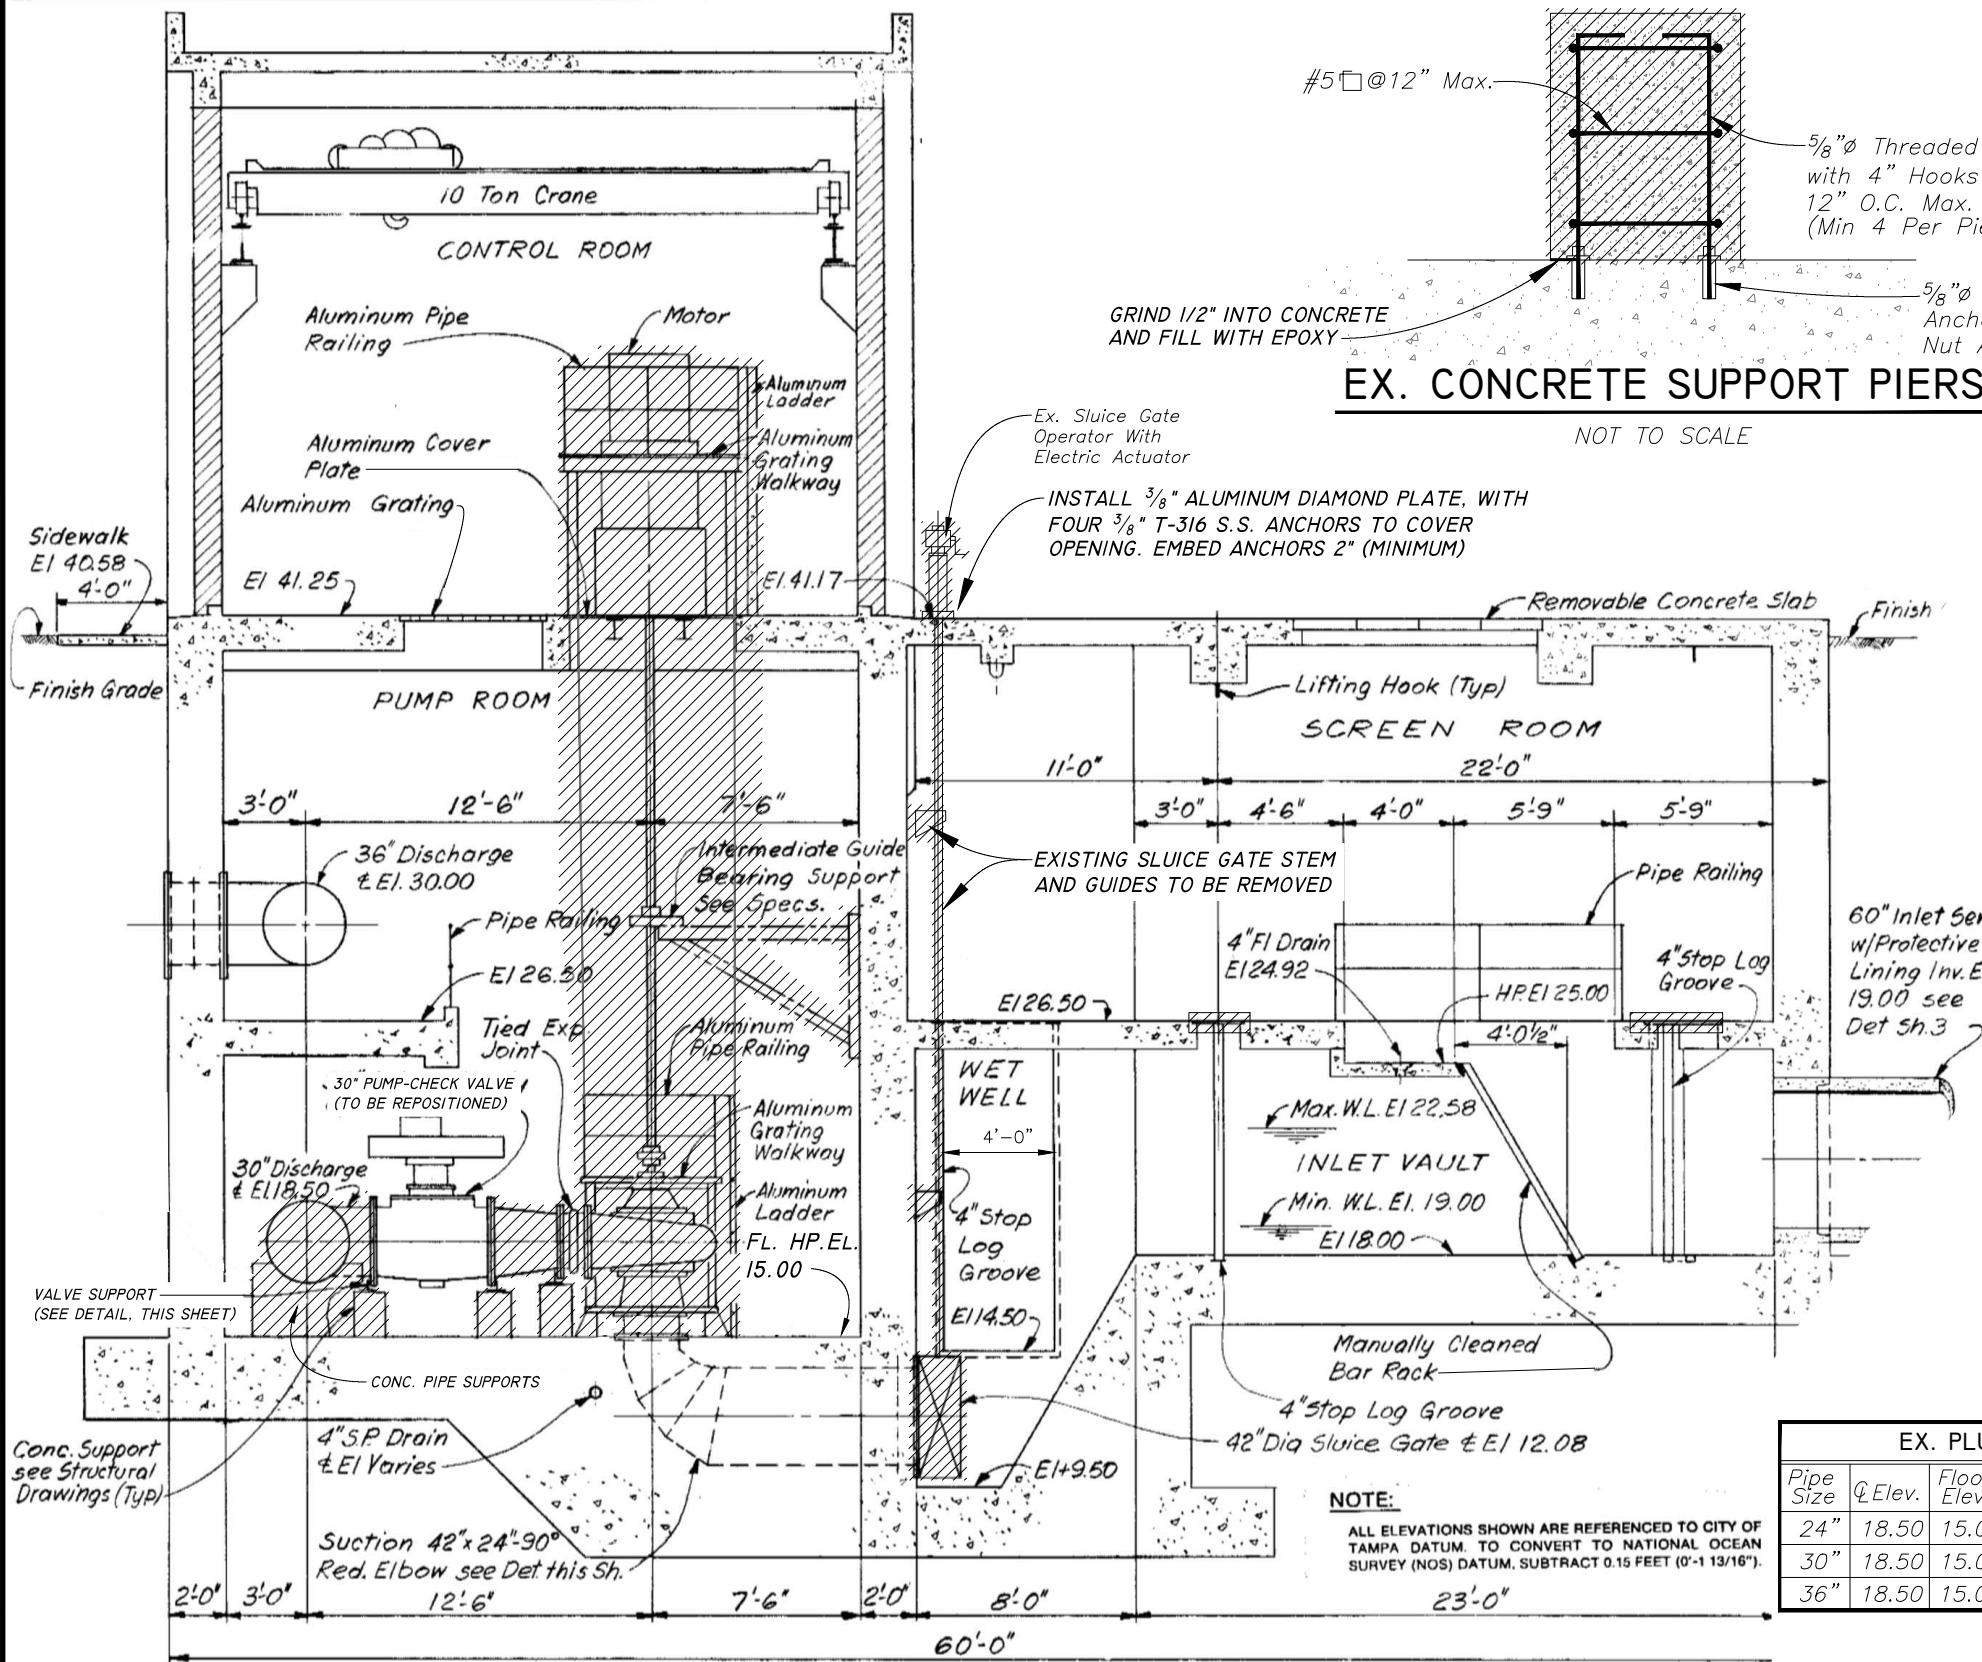 #5 @12" Max.
5/8"ø Threaded
with 4" Hooks
12" O.C. Max.
(Min 4 Per
5/8"ø
Nut
GRIND 1/2" INTO CONCRETE
AND FILL WITH EPOXY
EX. CONCRETE SUPPORT PIERS
NOT TO SCALE
10 Ton Crane
CONTROL ROOM
Aluminum Pipe
Railing
Motor
Aluminum
Ladder
Aluminum Cover
Plate
Aluminum
Grating
Walkway
Aluminum Grating
Ex. Sluice Gate
Operator With
Electric Actuator
INSTALL 3/8" ALUMINUM DIAMOND PLATE, WITH
FOUR 3/8" T-316 S.S. ANCHORS TO COVER
OPENING. EMBED ANCHORS 2" (MINIMUM)
Sidewalk
El 40.58
4'-0"
El 41.25
El. 41.17
Removable Concrete Slab
Finish
Finish Grade
PUMP ROOM
Lifting Hook (Typ)
SCREEN ROOM
11'-0"
22'-0"
3'-0"
12'-6"
7'-6"
3'-0"
4'-6"
4'-0"
5'-9"
5'-9"
36" Discharge
℄ El. 30.00
Intermediate Guide
Bearing Support
See Specs.
EXISTING SLUICE GATE STEM
AND GUIDES TO BE REMOVED
Pipe Railing
Pipe Railing
El 26.50
4" Fl Drain
El 24.92
4" Stop Log
Groove
60" Inlet
w/Protective
Lining Inv.
19.00 see
Det Sh. 3
El 26.50
H.P. El 25.00
4'-0½"
Tied Exp.
Joint
Aluminum
Pipe Railing
WET
WELL
30" PUMP-CHECK VALVE
(TO BE REPOSITIONED)
Aluminum
Grating
Walkway
4'-0"
Max. W.L. El 22.58
INLET VAULT
30" Discharge
℄ El 18.50
Aluminum
Ladder
Min. W.L. El. 19.00
4" Stop
Log
Groove
El 18.00
FL. HP. EL.
15.00
VALVE SUPPORT
(SEE DETAIL, THIS SHEET)
El 14.50
Manually Cleaned
Bar Rack
CONC. PIPE SUPPORTS
4" Stop Log Groove
42" Dia Sluice Gate ℄ El 12.08
Conc. Support
see Structural
Drawings (Typ)
4" S.P. Drain
℄ El Varies
El +9.50
Suction 42" x 24"-90°
Red. Elbow see Det. this Sh.
NOTE:
ALL ELEVATIONS SHOWN ARE REFERENCED TO CITY OF
TAMPA DATUM. TO CONVERT TO NATIONAL OCEAN
SURVEY (NOS) DATUM, SUBTRACT 0.15 FEET (0'-1 13/16").
EX.
Pipe Size ℄ Elev.
24" 18.50
30" 18.50
36" 18.50
2'-0"
3'-0"
12'-6"
7'-6"
2'-0"
8'-0"
23'-0"
60'-0"